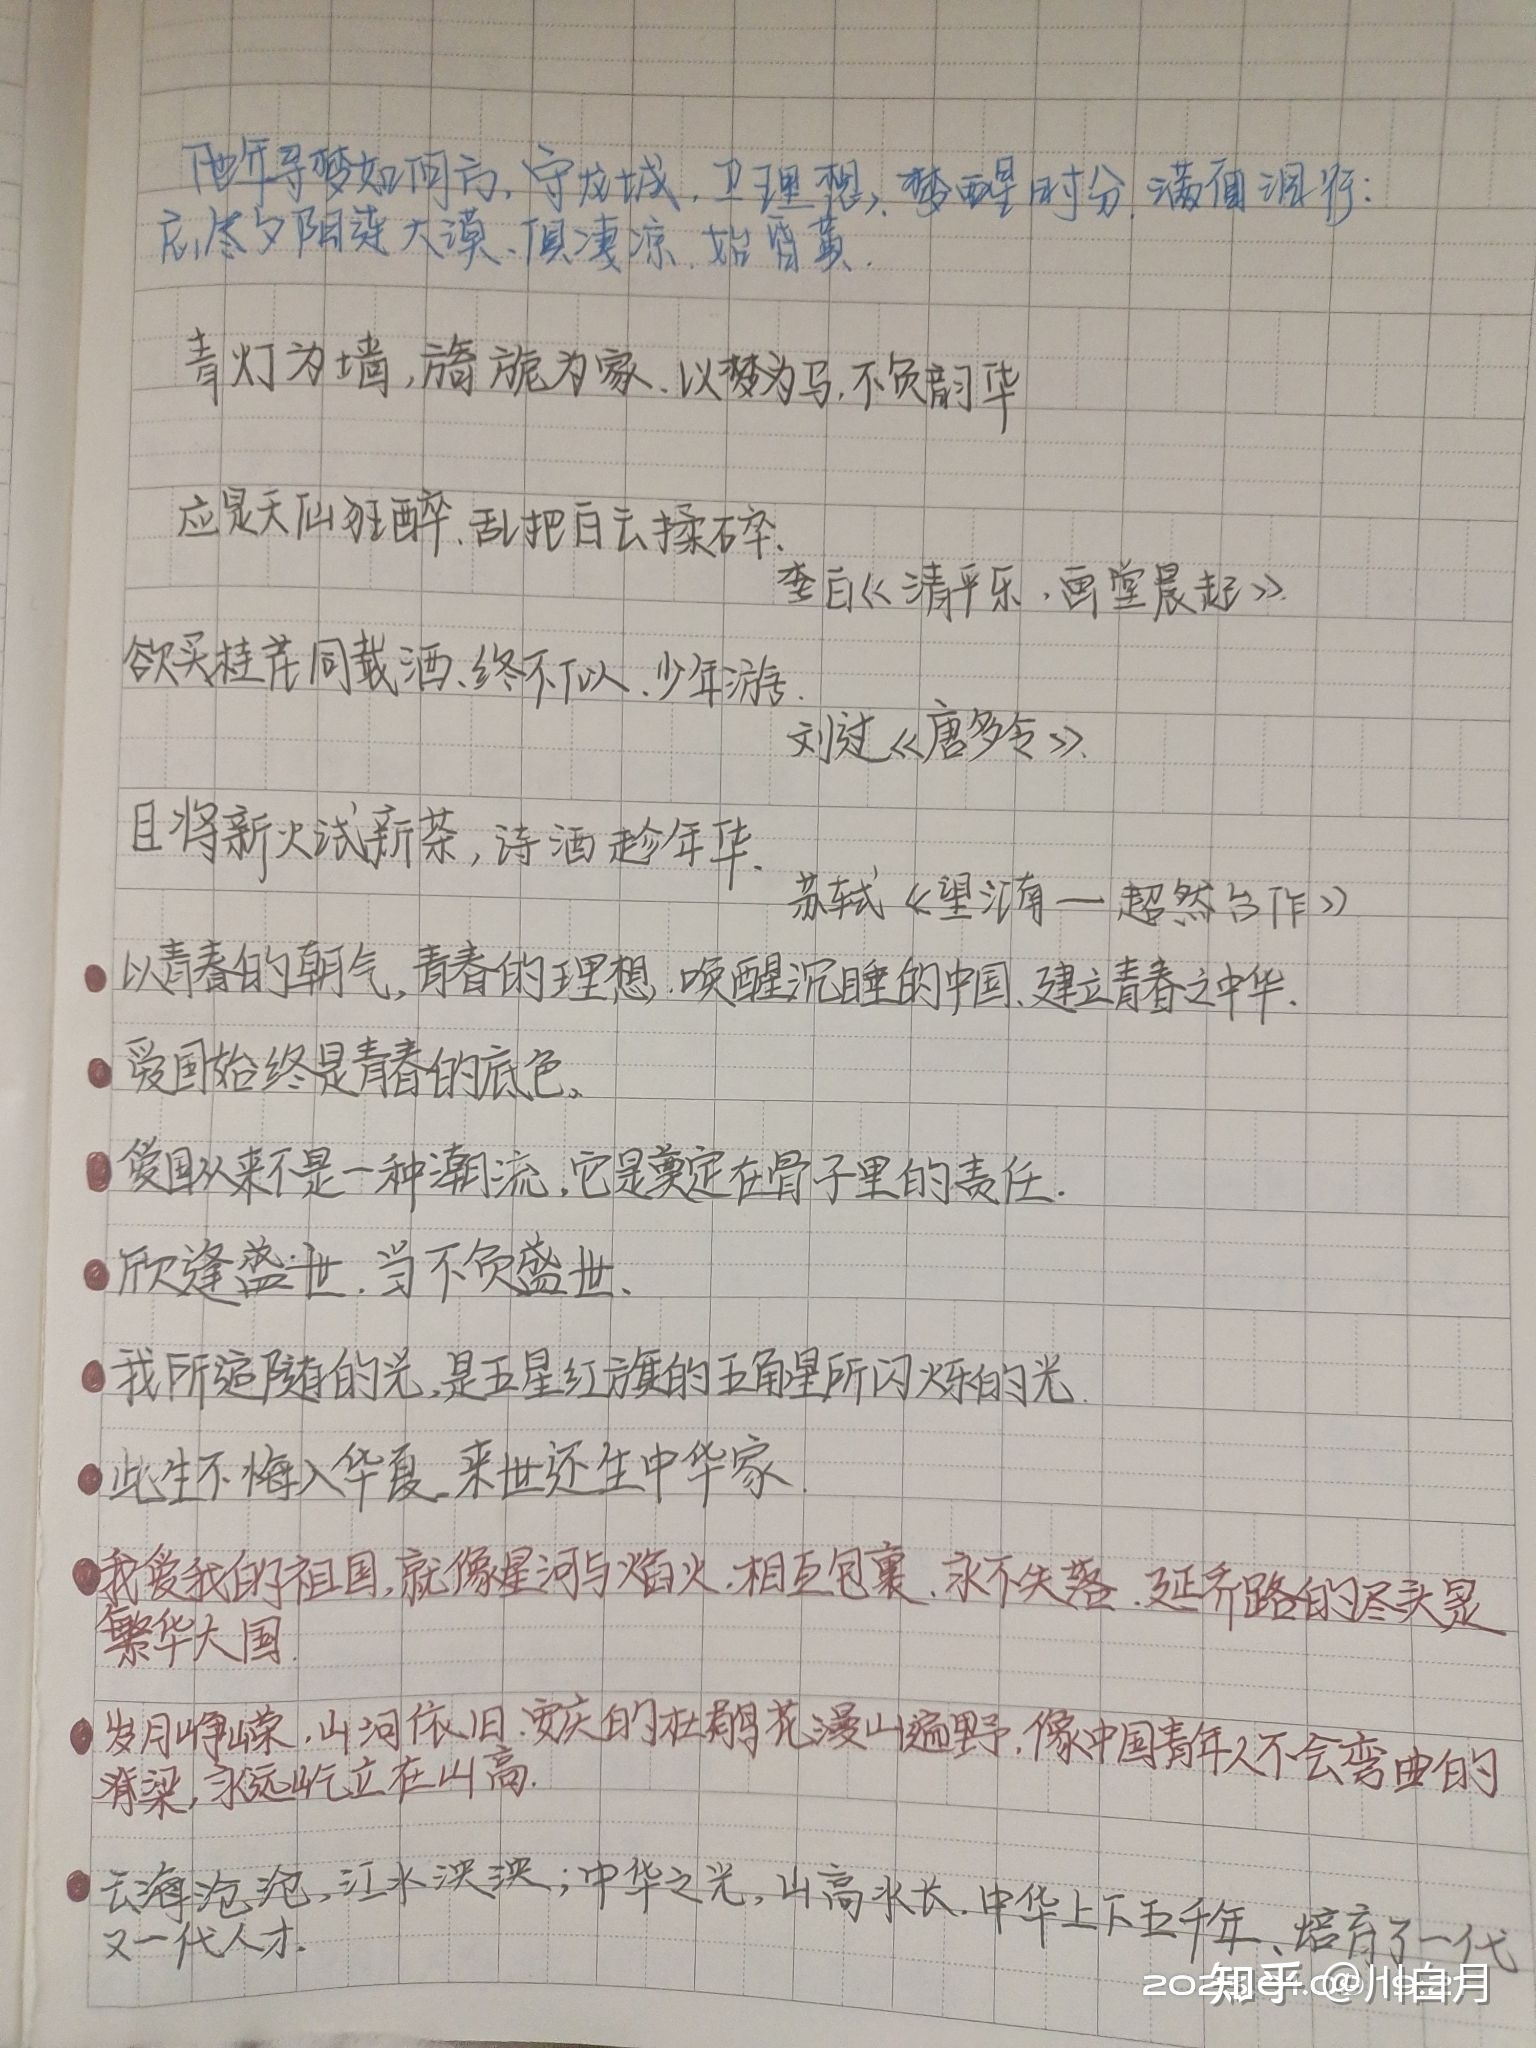 他年寻梦如何方,守龙城,卫理想,梦醒时分,满面泪行:
忘尽夕阳连大漠、俱凄凉,始昏黄.
青灯为墙,旖旎为家.以梦为马,不负韵华
应是天仙狂醉、乱把白云揉碎.
李白《清平乐·画堂晨起》.
欲买桂花同载酒、终不似、少年游.
刘过《唐多令》.
且将新火试新茶,诗酒趁年华.
苏轼《望江南一超然台作》
以青春的朝气,青春的理想,唤醒沉睡的中国、建立青春之中华.
爱国始终是青春的底色、
爱国从来不是一种潮流,它是奠定在骨子里的责任.
欣逢盛世.当不负盛世、
我所追随的光,是五星红旗的五角星所闪烁的光.
此生不悔入华夏.来世还生中华家.
我爱我的祖国,就像星河与焰火.相互包裹、永不失落.延乔路的尽头是
繁华大国.
岁月峥嵘,山河依旧.安庆的杜鹃花漫山遍野,像中国青年人不会弯曲的
脊梁,永远屹立在山高.
云海沧沧,江水泱泱;中华之光,山高水长.中华上下五千年、培育了一代
又一代人才.
知乎 @川白月